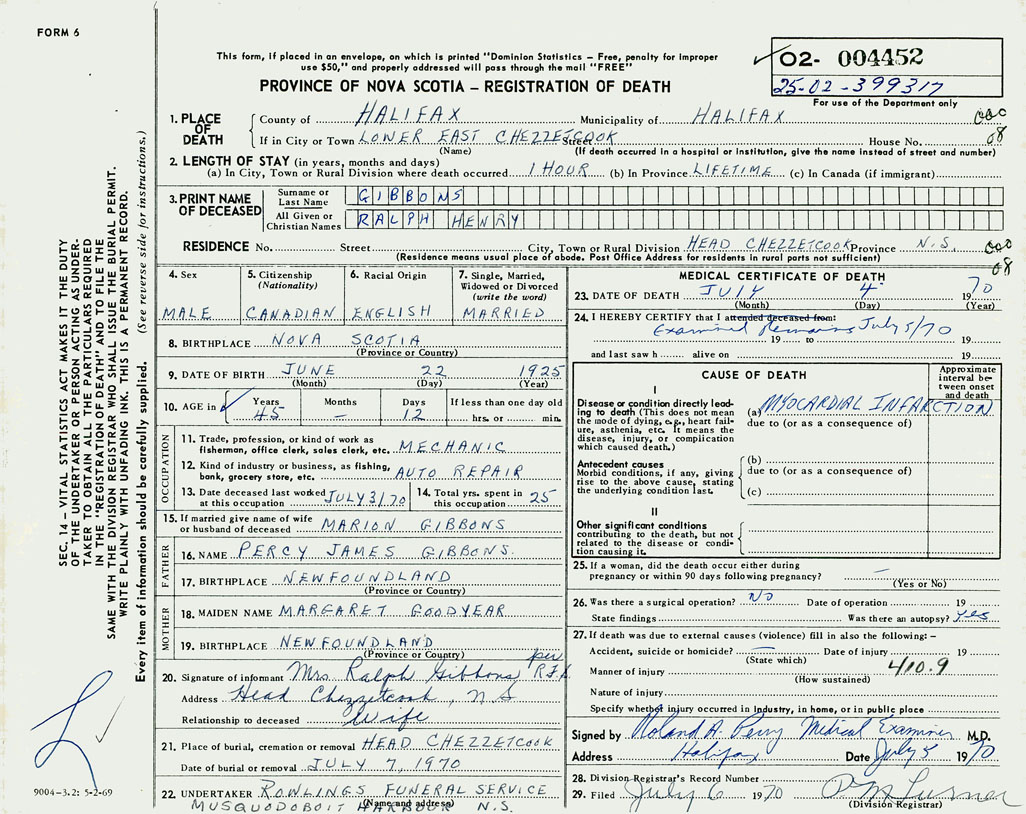 FORM 6
This form, if placed in an envelope, on which is printed "Dominion Statistics – Free, penalty for improper
use $50," and properly addressed will pass through the mail "FREE"
PROVINCE OF NOVA SCOTIA – REGISTRATION OF DEATH
02- 004452
25-02-399317
For use of the Department only
1. PLACE OF DEATH
County of HALIFAX Municipality of HALIFAX
08
If in City or Town LOWER EAST CHEZZETCOOK Street House No.
(Name) (If death occurred in a hospital or institution, give the name instead of street and number)
2. LENGTH OF STAY (in years, months and days)
(a) In City, Town or Rural Division where death occurred 1 HOUR (b) In Province LIFETIME (c) In Canada (if immigrant)
3. PRINT NAME OF DECEASED
Surname or Last Name GIBBONS
All Given or Christian Names RALPH HENRY
RESIDENCE No. Street City, Town or Rural Division HEAD CHEZZETCOOK Province N.S.
(Residence means usual place of abode. Post Office Address for residents in rural parts not sufficient)
08
4. Sex
MALE
5. Citizenship (Nationality)
CANADIAN
6. Racial Origin
ENGLISH
7. Single, Married, Widowed or Divorced (write the word)
MARRIED
8. BIRTHPLACE NOVA SCOTIA
(Province or Country)
9. DATE OF BIRTH JUNE 22 1925
(Month) (Day) (Year)
10. AGE in Years Months Days If less than one day old
45 – 12 hrs. or min.
OCCUPATION
11. Trade, profession, or kind of work as
fisherman, office clerk, sales clerk, etc. MECHANIC
12. Kind of industry or business, as fishing,
bank, grocery store, etc. AUTO REPAIR
13. Date deceased last worked at this occupation JULY 3/70
14. Total yrs. spent in this occupation 25
15. If married give name of wife
or husband of deceased MARION GIBBONS
FATHER
16. NAME PERCY JAMES GIBBONS.
17. BIRTHPLACE NEWFOUNDLAND
(Province or Country)
MOTHER
18. MAIDEN NAME MARGARET GOODYEAR
19. BIRTHPLACE NEWFOUNDLAND
(Province or Country)
per
20. Signature of informant Mrs. Ralph Gibbons
Address Head Chezzetcook, N S
Relationship to deceased Wife
21. Place of burial, cremation or removal HEAD CHEZZETCOOK
Date of burial or removal JULY 7, 1970
22. UNDERTAKER ROWLINGS FUNERAL SERVICE
(Name and address)
MUSQUODOBOIT HARBOUR N.S.
MEDICAL CERTIFICATE OF DEATH
23. DATE OF DEATH JULY 4 1970
(Month) (Day) (Year)
24. I HEREBY CERTIFY that I attended deceased from:
Examined Remains July 5/70
19 to 19
and last saw h alive on 19
CAUSE OF DEATH
Approximate interval between onset and death
I
Disease or condition directly leading to death (This does not mean the mode of dying, e.g., heart failure, asthenia, etc. It means the disease, injury, or complication which caused death.)
(a) MYOCARDIAL INFARCTION
due to (or as a consequence of)
Antecedent causes
Morbid conditions, if any, giving rise to the above cause, stating the underlying condition last.
(b)
due to (or as a consequence of)
(c)
II
Other significant conditions
contributing to the death, but not related to the disease or condition causing it.
25. If a woman, did the death occur either during
pregnancy or within 90 days following pregnancy? –
(Yes or No)
26. Was there a surgical operation? NO Date of operation 19
State findings Was there an autopsy? Yes
27. If death was due to external causes (violence) fill in also the following: –
Accident, suicide or homicide? – Date of injury 19
(State which)
Manner of injury 410.9
(How sustained)
Nature of injury
Specify whether injury occurred in Industry, in home, or in public place
Signed by Roland A. Perry Medical Examiner M.D.
Address Halifax Date July 5 1970
28. Division Registrar's Record Number
29. Filed July 6 1970
(Division Registrar)
SEC. 14 – VITAL STATISTICS ACT MAKES IT THE DUTY
OF THE UNDERTAKER OR PERSON ACTING AS UNDER-
TAKER TO OBTAIN ALL THE PARTICULARS REQUIRED
IN THE "REGISTRATION OF DEATH" AND TO FILE THE
SAME WITH THE DIVISION REGISTRAR WHO SHALL ISSUE THE BURIAL PERMIT.
WRITE PLAINLY WITH UNFADING INK. THIS IS A PERMANENT RECORD.
Every item of information should be carefully supplied. (See reverse side for instructions.)
9004-3.2: 5-2-69